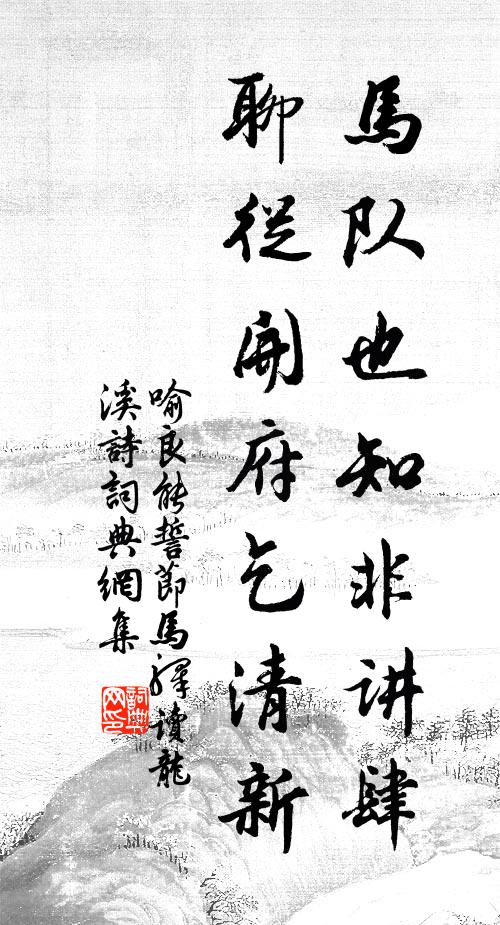 馬队也知非讲肆
聊從開府乞清新
喻良能誓節馬驛讀龍
溪詩詞典網集